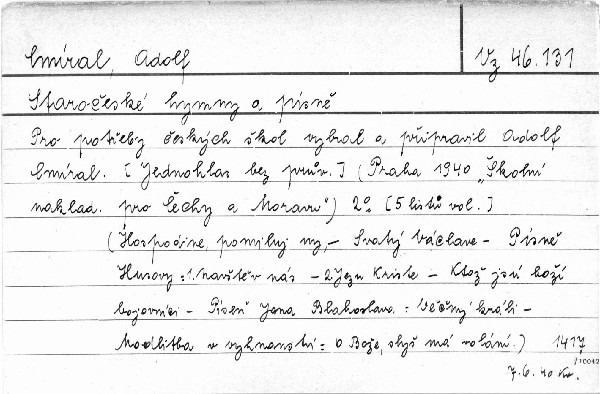 Cmíral, Adolf
Vz 46.131
Staročeské hymny a písně
Pro potřeby českých škol vybral a připravil Adolf
Cmíral. [Jednohlas bez prův.] (Praha 1940 „Školní
naklad. pro Čechy a Moravu") 2° [5 listů vol.]
(Hospodine, pomiluj ny, – Svatý Václave – Písně
Husovy: 1. Navštěv nás – 2. Jezu Kriste – Ktož jsú boží
bojovníci – Píseň Jana Blahoslava: Věčný králi –
Modlitba v vyhnanství: o Bože, slyš má volání.) 1417
7.6.40 Kr.